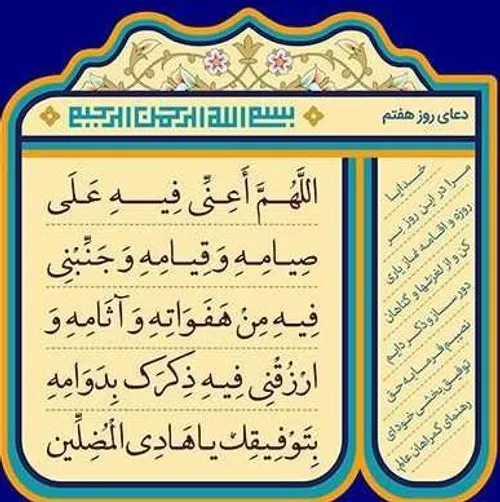 دعای روز هفتم
بسم الله الرحمن الرحیم
اللَّهُمَّ أَعِنِّی فِیهِ عَلَی
صِیَامِهِ وَ قِیَامِهِ وَ جَنِّبْنِی
فِیهِ مِنْ هَفَوَاتِهِ وَ آثَامِهِ وَ
ارْزُقْنِی فِیهِ ذِکْرَکَ بِدَوَامِهِ
بِتَوْفِیقِكَ یَا هَادِیَ الْمُضِلِّین
خدایا
مرا در این روز بر
روزه و اقامه نماز یاری
کن و از لغزشها و گناهان
دور ساز و ذکر دایم
نصیبم فرما به حق
توفیق بخشی خود ای
رهنمای گمراهان عالم